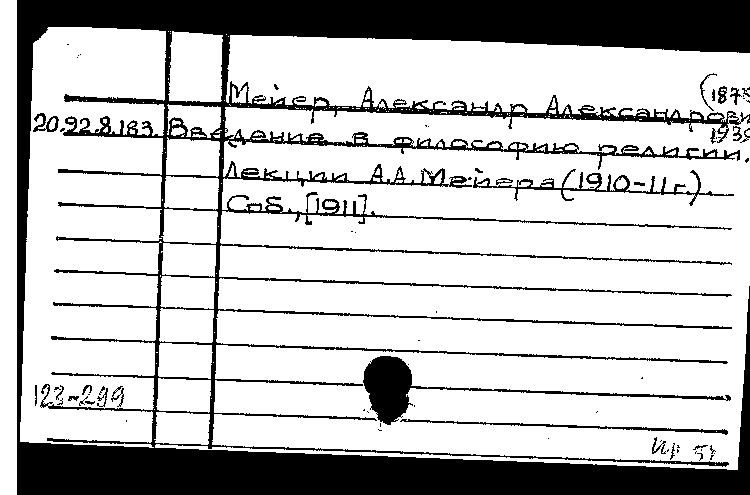 (1875
Мейер, Александр Александрови
1939
20.92.8.183. Введение в философию религии.
Лекции А.А.Мейера (1910-11 г.).
Спб., [1911].
123-299